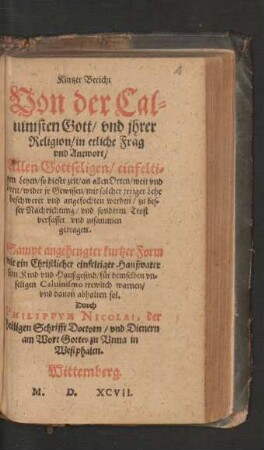 Kurtzer Bericht
Von der Cal-
uinisten Gott/ vnd jhrer
Religion/ in etliche Frag
vnd Antwort/
Allen Gottseligen/ einfelti-
gen Leyen/ so dieser zeit/ an allen Orten/ weit vnd
breit/ wider jr Gewissen/ mit solcher jrriger Lehr
beschweret vnd angefochten werden/ zu bes-
ser Nachrichtung/ vnd sonderm Trost
verfasset vnd zusammen
getragen.
Sampt angehengter kurtzer Form
wie ein Christlicher einfeltiger Haußvater
sein Kind vnd Haußgesind/ für demselben vn-
seligen Caluinismo trewlich warnen/
vnd dauon abhalten sol.
Durch
PHILIPPVM NICOLAI, der
heiligen Schrifft Doctorn/ vnd Dienern
am Wort Gottes zu Vnna in
Westphalen.
Wittemberg.
M. D. XCVII.